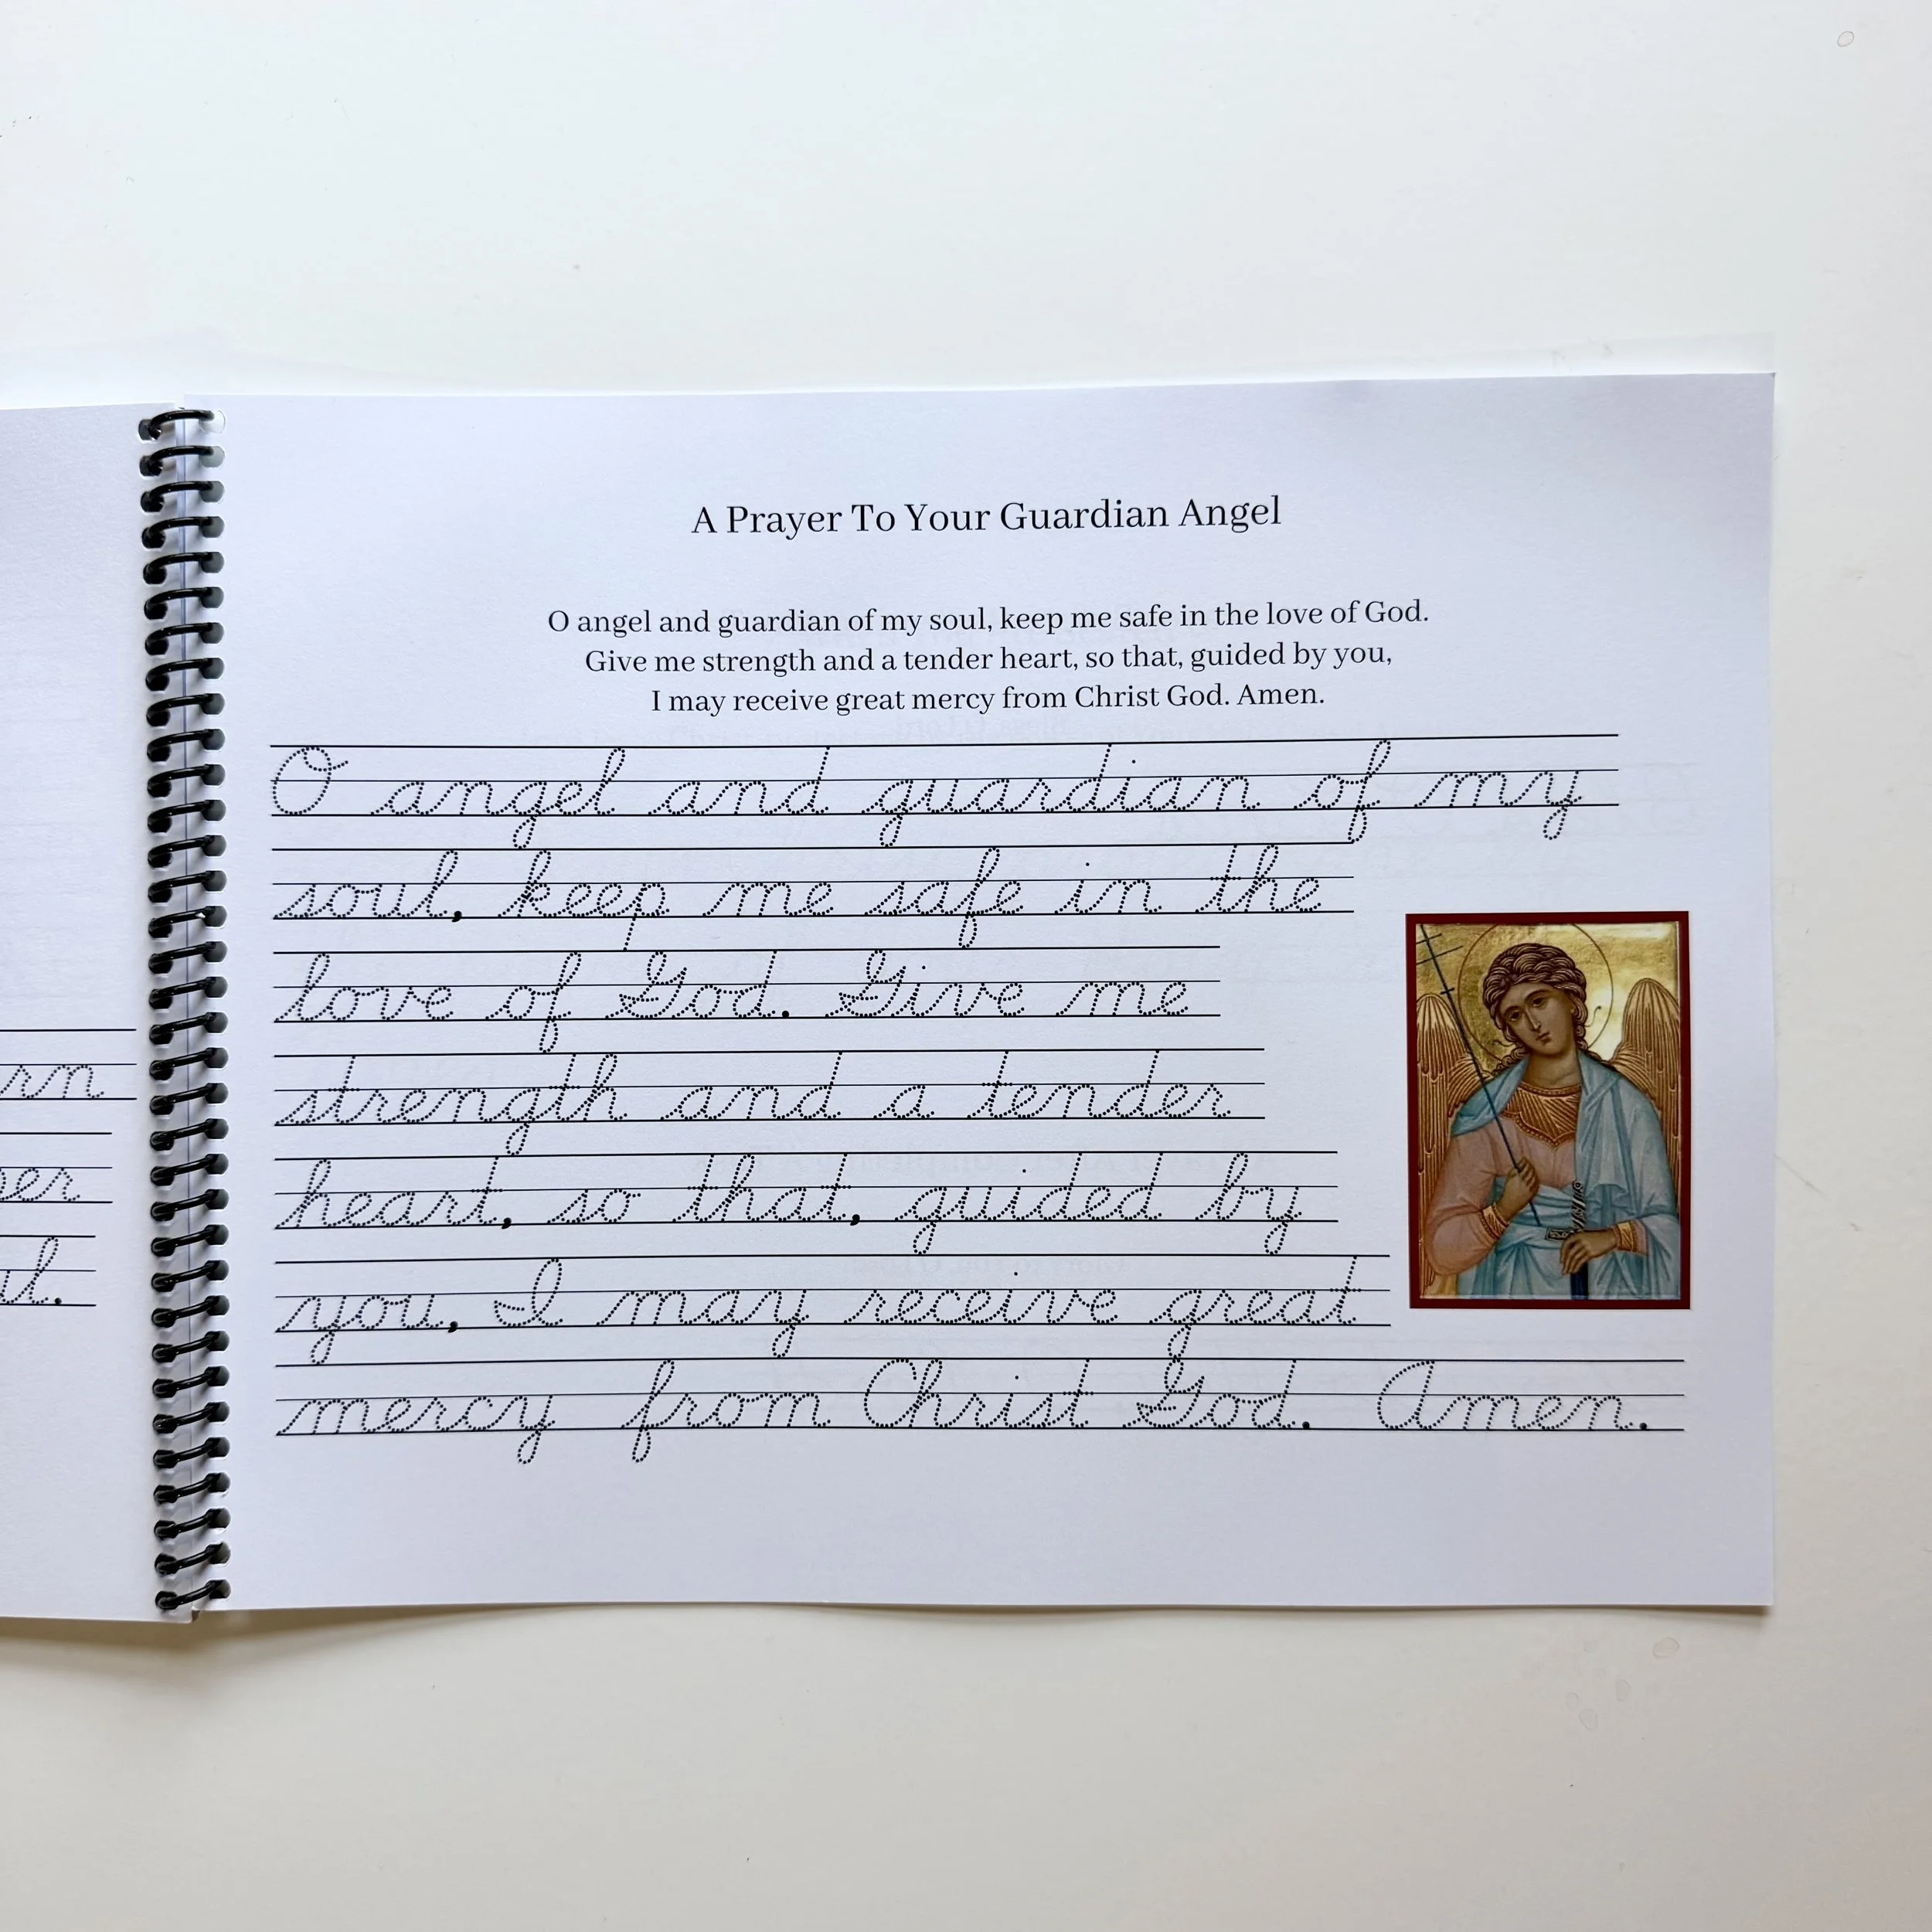 A Prayer To Your Guardian Angel
O angel and guardian of my soul, keep me safe in the love of God.
Give me strength and a tender heart, so that, guided by you,
I may receive great mercy from Christ God. Amen.
O angel and guardian of my
soul, keep me safe in the
love of God. Give me
strength and a tender
heart, so that, guided by
you, I may receive great
mercy from Christ God. Amen.